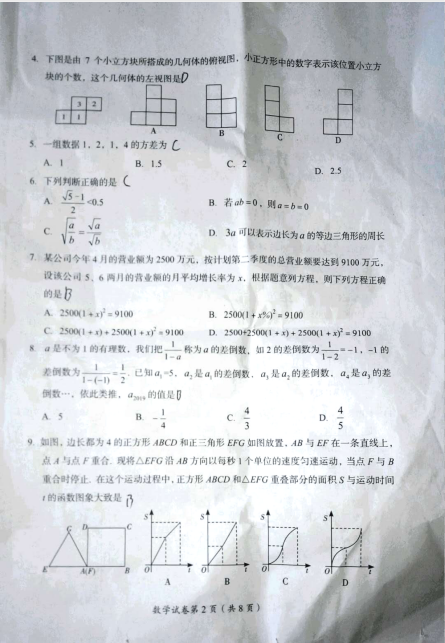 4. 下图是由 7 个小立方块所搭成的几何体的俯视图，小正方形中的数字表示该位置小立方
块的个数，这个几何体的左视图是D
3 2
1 1
A B C D
5. 一组数据 1、2、1、4 的方差为 C
A. 1 B. 1.5 C. 2 D. 2.5
6. 下列判断正确的是 C
A. (√5-1)/2<0.5 B. 若 ab=0，则 a=b=0
C. √(a/b)=√a/√b D. 3a 可以表示边长为 a 的等边三角形的周长
7. 某公司今年 4 月的营业额为 2500 万元，按计划第二季度的总营业额要达到 9100 万元，
设该公司 5、6 两月的营业额的月平均增长率为 x，根据题意列方程，则下列方程正确
的是B
A. 2500(1+x)²=9100 B. 2500(1+x%)²=9100
C. 2500(1+x)+2500(1+x)²=9100 D. 2500+2500(1+x)+2500(1+x)²=9100
8. a 是不为 1 的有理数，我们把 1/(1-a) 称为 a 的差倒数，如 2 的差倒数为 1/(1-2)=-1，-1 的
差倒数为 1/(1-(-1))=1/2. 已知 a₁=5，a₂ 是 a₁ 的差倒数，a₃ 是 a₂ 的差倒数，a₄ 是 a₃ 的差
倒数…，依此类推，a₂₀₁₉ 的值是D
A. 5 B. -1/4 C. 4/3 D. 4/5
9. 如图，边长都为 4 的正方形 ABCD 和正三角形 EFG 如图放置，AB 与 EF 在一条直线上，
点 A 与点 F 重合. 现将△EFG 沿 AB 方向以每秒 1 个单位的速度匀速运动，当点 F 与 B
重合时停止. 在这个运动过程中，正方形 ABCD 和△EFG 重叠部分的面积 S 与运动时间
t 的函数图象大致是 B
G D C
E A(F) B
S O t S O t S O t S O t
A B C D
数学试卷第 2 页（共 8 页）